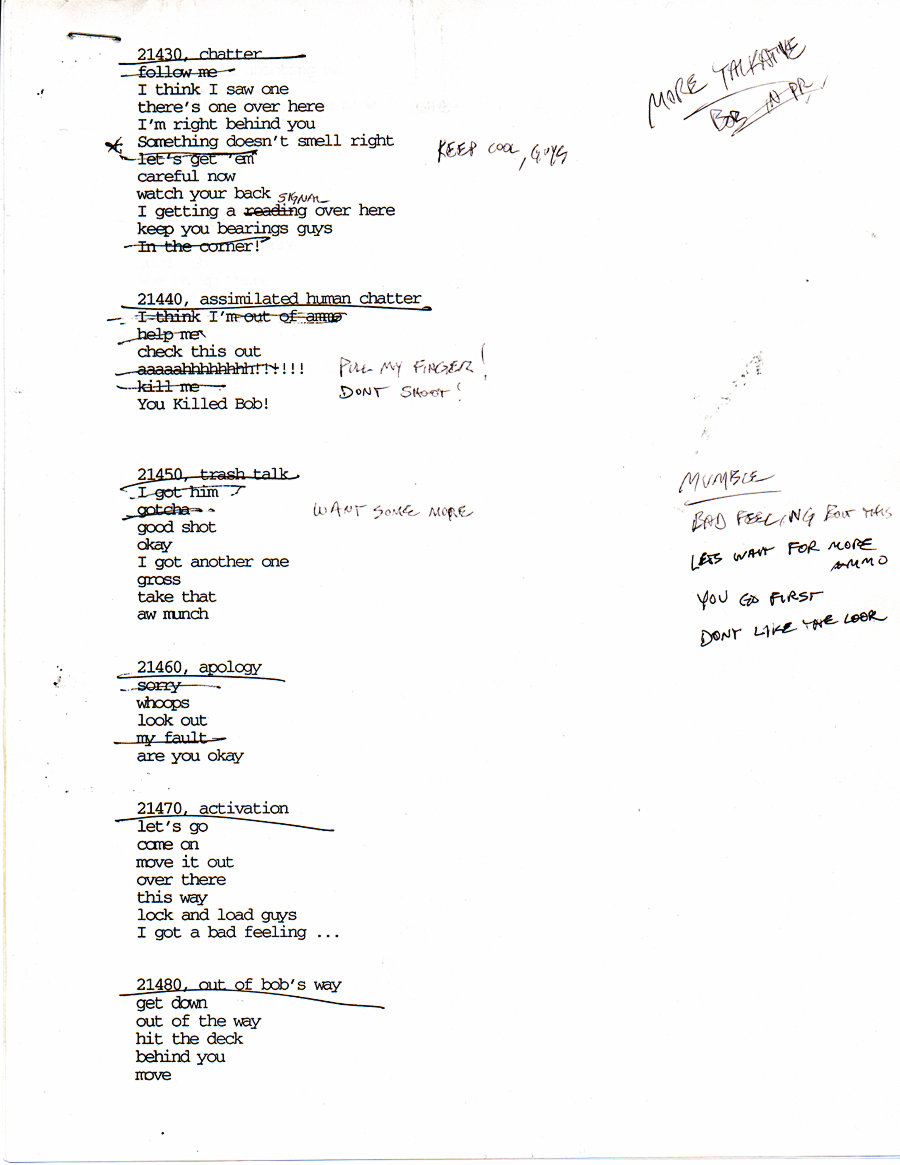 21430, chatter
follow me
I think I saw one
there's one over here
I'm right behind you
Something doesn't smell right
let's get 'em
careful now
watch your back
SIGNAL
I getting a reading over here
keep you bearings guys
In the corner!
MORE TALKATIVE
BOB IN PR!
KEEP COOL, GUYS
21440, assimilated human chatter
I think I'm out of ammo
help me
check this out
aaaaahhhhhhhh!!!!!!
kill me
You Killed Bob!
PULL MY FINGER!
DONT SHOOT!
21450, trash talk
I got him
gotcha
good shot
okay
I got another one
gross
take that
aw munch
WANT SOME MORE
MUMBLE
BAD FEELING BOUT THIS
LETS WAIT FOR MORE
AMMO
YOU GO FIRST
DONT LIKE THE LOOK
21460, apology
sorry
whoops
look out
my fault
are you okay
21470, activation
let's go
come on
move it out
over there
this way
lock and load guys
I got a bad feeling ...
21480, out of bob's way
get down
out of the way
hit the deck
behind you
move